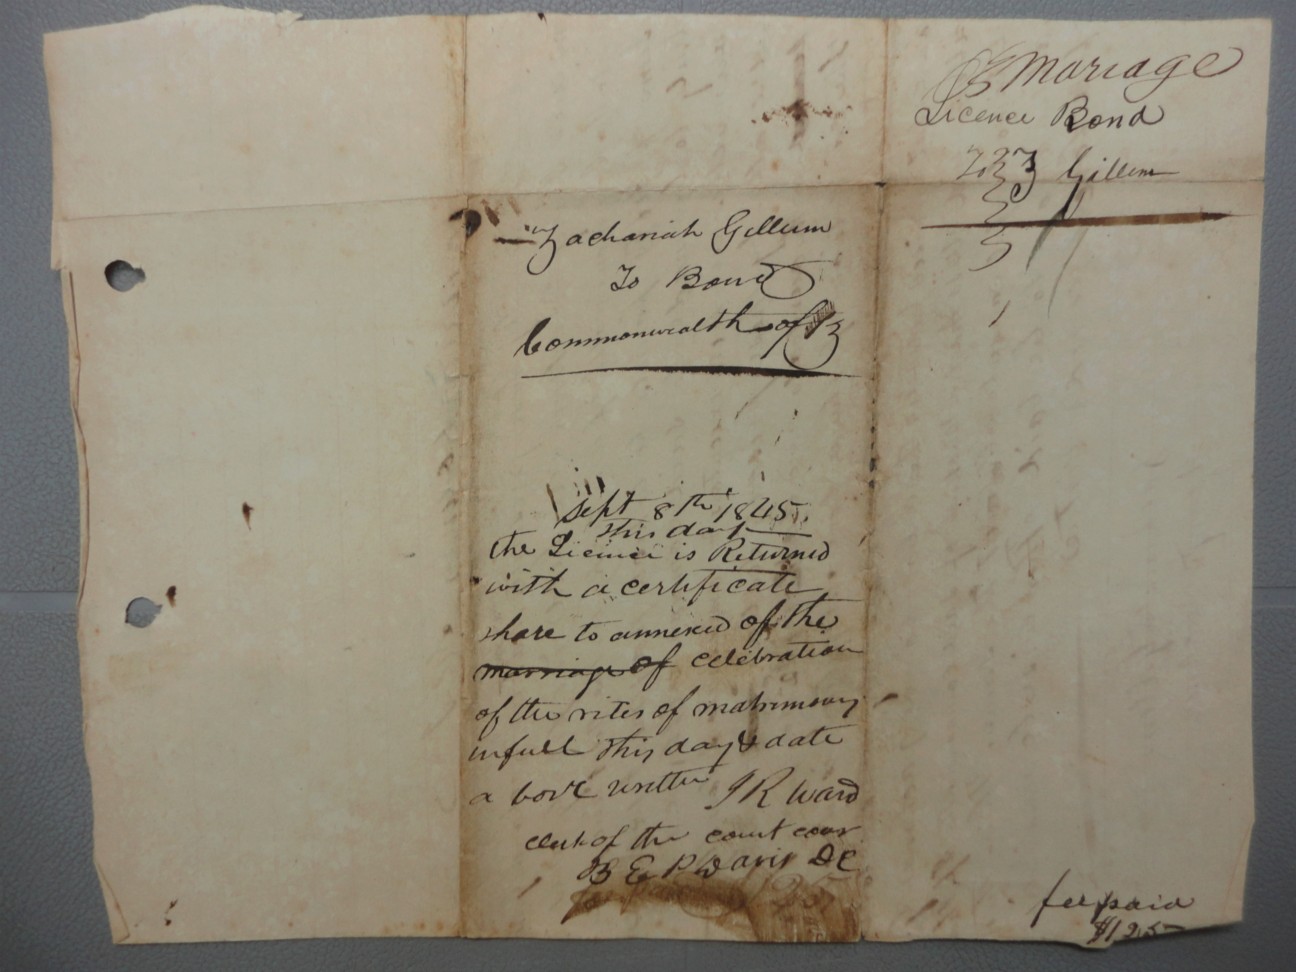 Mariage
Licence Bond
Gillum
Zachariah Gillum
To Bond
Commonwealth of
Sept 8th 1845
this day
the Licince is Returned
with a certificate
thare to annexed of the
marriage of celebration
of the rites of matrimony
in full this day & date
a bove written J R Ward
clerk of the court
B E P Davis DC
fee paid
$1 25